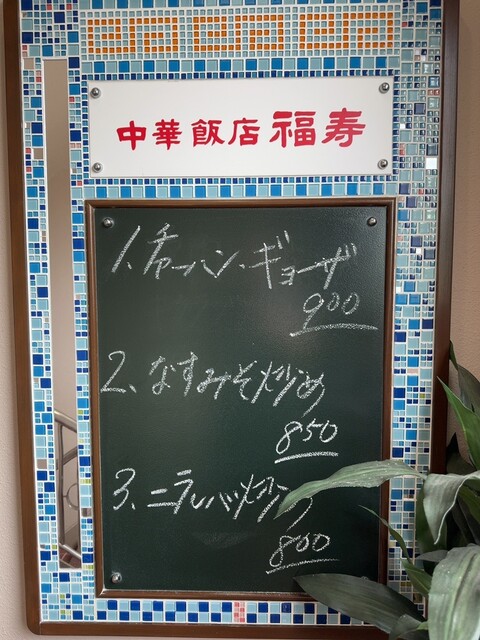 中華飯店 福寿
1、チャーハン・ギョーザ
900
2、なすみそ炒め
850
3、ニラレバ炒め
800